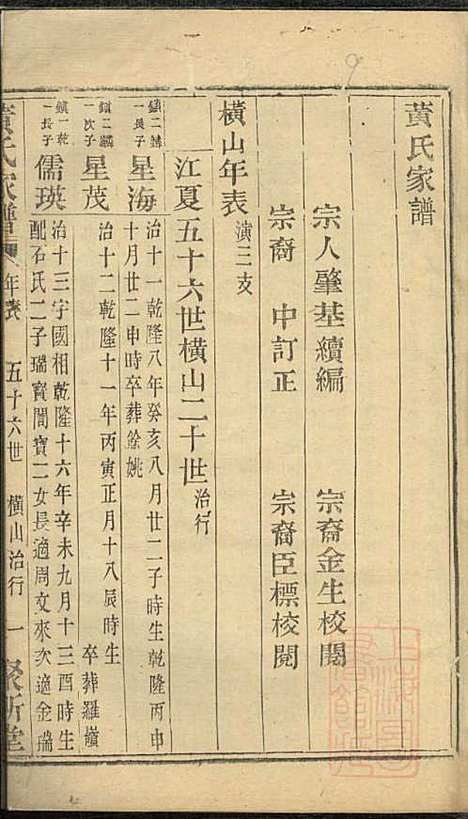 黃氏家譜
宗人肇基續編　宗裔金生校閱
宗裔　中訂正　宗裔臣標校閱
橫山年表 演三支
江夏五十六世橫山二十世 治行
鎮二
一長子
星海
治十一乾隆八年癸亥八月廿二子時生乾隆丙申
十月廿二申時卒葬餘姚
鎮二
一次子
星茂
治十二乾隆十一年丙寅正月十八辰時生
卒葬羅嶺
鎮一乾
一長子
儒瑛
治十三字國相乾隆十六年辛未九月十三酉時生
配石氏二子瑞寶閏寶二女長適周文來次適金瑞
黃氏家譜 年表 五十六世 橫山治行 一 聚斯堂